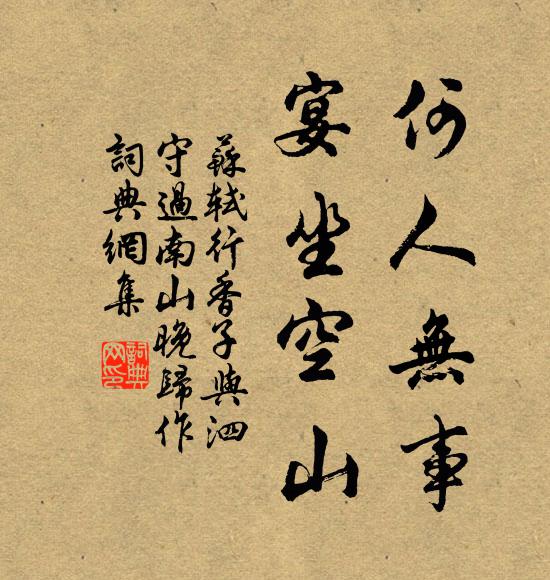 何人無事
宴坐空山
蘇軾行香子與泗
守過南山晚歸作
詞典網集
詞典
网印